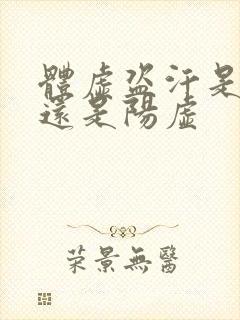 體虛盗汗是
還是陽虛
荣景無醫